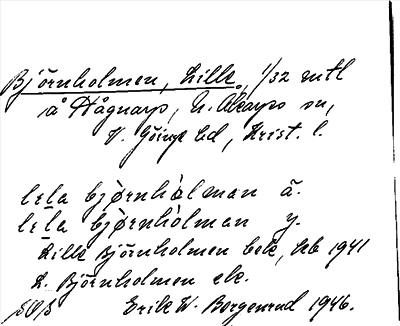 Björnholmen, Lille, 1/32 mtl
å Hågnarp, N. Åkarps sn,
V. Göinge hd, Krist. l.
lela bjørnhòlman ä.
lela bjørnhòlman y.
Lille Björnholmen bok, lsb 1941
L. Björnholmen ek.
SOS Erik W. Borgenrud 1946.